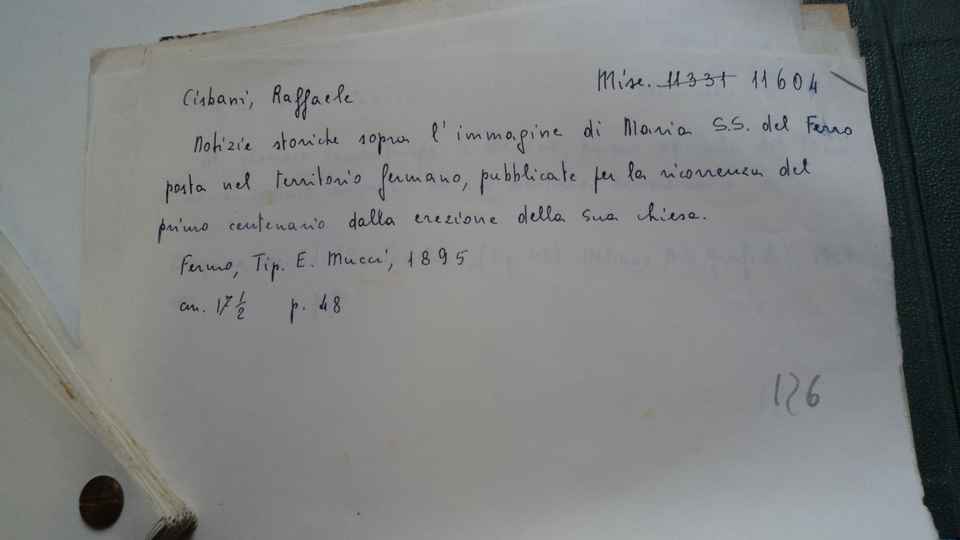 Cisbani, Raffaele
Misc. 11331 11604
Notizie storiche sopra l'immagine di Maria S.S. del Ferro
posta nel territorio fermano, pubblicate per la ricorrenza del
primo centenario dalla erezione della sua chiesa.
Fermo, Tip. E. Mucci, 1895
cm. 17 1/2 p. 48
126